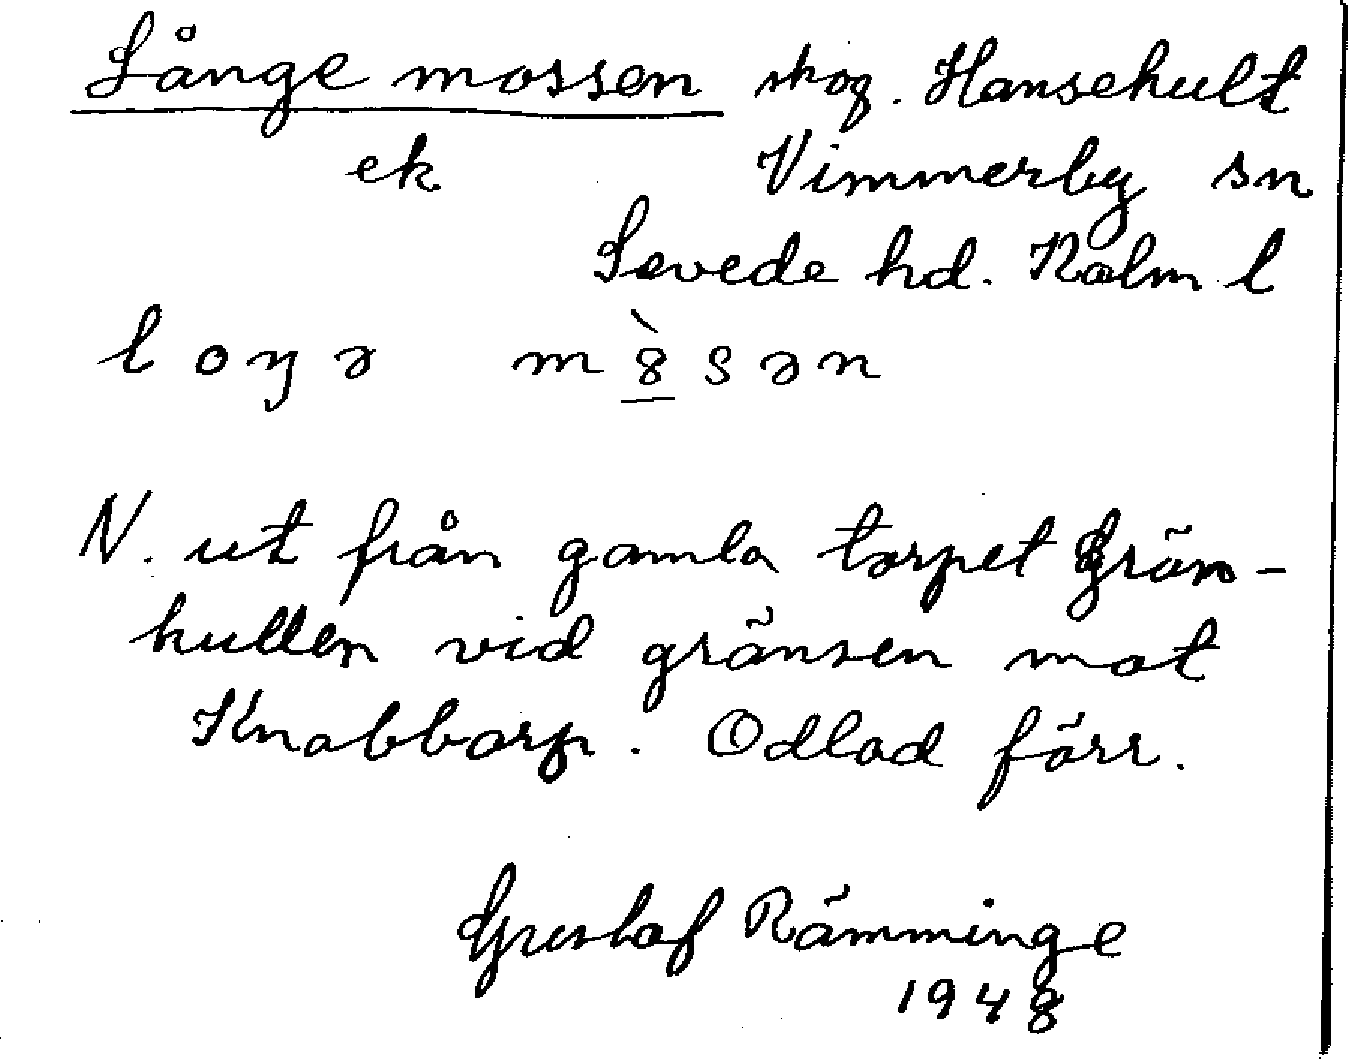 Långe mossen skog. Hansehult
ek Vimmerby sn
Sevede hd. Kalm l
l o ŋ ə m ȣ̀ s ə n
N. ut från gamla torpet Grän-
kullen vid gränsen mot
Knabbarp. Odlad förr.
Gustaf Rämminge
1948